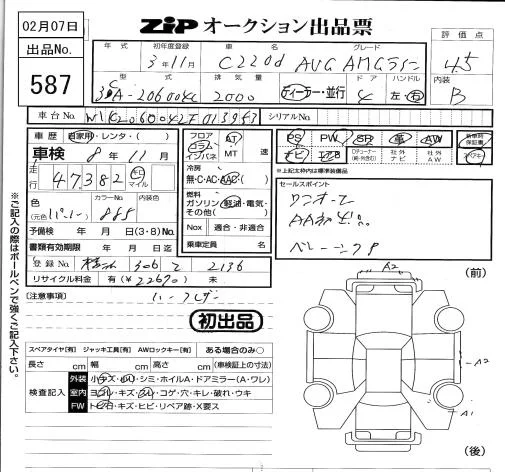 02月07日
ZIP オークション出品票
出品No.
587
年式
初年度登録
車名
グレード
評価点
3年11月
C220d
AVG AMGライン
4.5
型式
排気量
ドア
ハンドル
内装
3CA-206004C
2000
ディーラー・並行
4
左・右
B
車台No.
シリアルNo.
車歴
自家用・レンタ・( )
車検
8年11月
走行
47,382
km
マイル
色
(元色 )
カラーNo.
内装色
888
予備検 年 月 日(3・8)No.
書類有効期限 年 月 日迄
登録No.
306
て
2136
リサイクル料金 有(¥22690) 未
フロア
コラム
インパネ
AT
MT
速
冷房
無・C・AC・AAC
燃料
ガソリン・軽油・電気・
その他( )
Nox 適合・非適合
乗車定員 名
PS
PW
SR
革
AW
ナビ
TV
社外
ナビ
社外
AW
新車時
保証書
※上記太枠内は標準装備品
セールスポイント
ワンオーナー
[注意事項]
初出品
(前)
(後)
A2
A2
A1
スペアタイヤ[有] ジャッキ工具[有] AWロックキー[有] ある場合のみ○
長さ cm 幅 cm 高さ cm (車検証上の寸法)
検査記入
外装 小キズ・凹・シミ・ホイルA・ドアミラー(A・ワレ)
室内 ヨゴレ・キズ・スレ・コゲ・穴・キレ・破れ・ウキ
FW トビ石・キズ・ヒビ・リペア跡・X要ス
※ご記入の際はボールペンで強くご記入下さい。